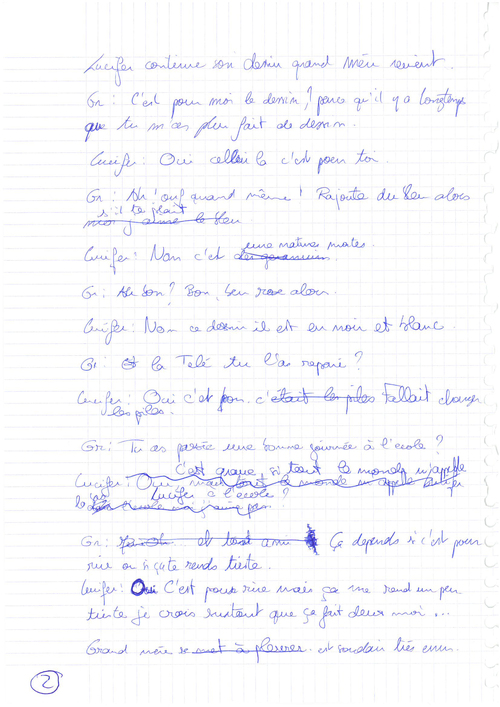 Lucifer continue son dessin quand Mère revient.
Gr : C'est pour moi le dessin, ? parce qu'il y a longtemps
que tu m'as plus fait de dessin.
Lucifer : Oui celui là c'est pour toi.
Gr : Ah ! ouf quand même ! Rajoute du bleu alors
s'il te plaît
moi j'aime le bleu
une nature
Lucifer : Non c'est des geranium.
Gr : Ah bon ? Bon, ben rose alors.
Lucifer : Non ce dessin il est en noir et blanc.
Gr : Et la Télé tu l'as reparé ?
Lucifer : Oui c'est bon. c'était les piles Fallait changer
les piles.
Gr : Tu as passée une bonne journée à l'école ?
C'est grave, si tout le monde m'appelle
Lucifer : Oui mais tout le monde m'appelle Lucifer
Lucifer à l'école ?
Gr : et tout Ça depends si c'est pour
rire ou si ça te rends triste.
Lucifer : Oui C'est pour rire mais ça me rend un peu
triste je crois surtout que ça fait peur moi ...
Grand mère se met à pleurer. est soudain très
2